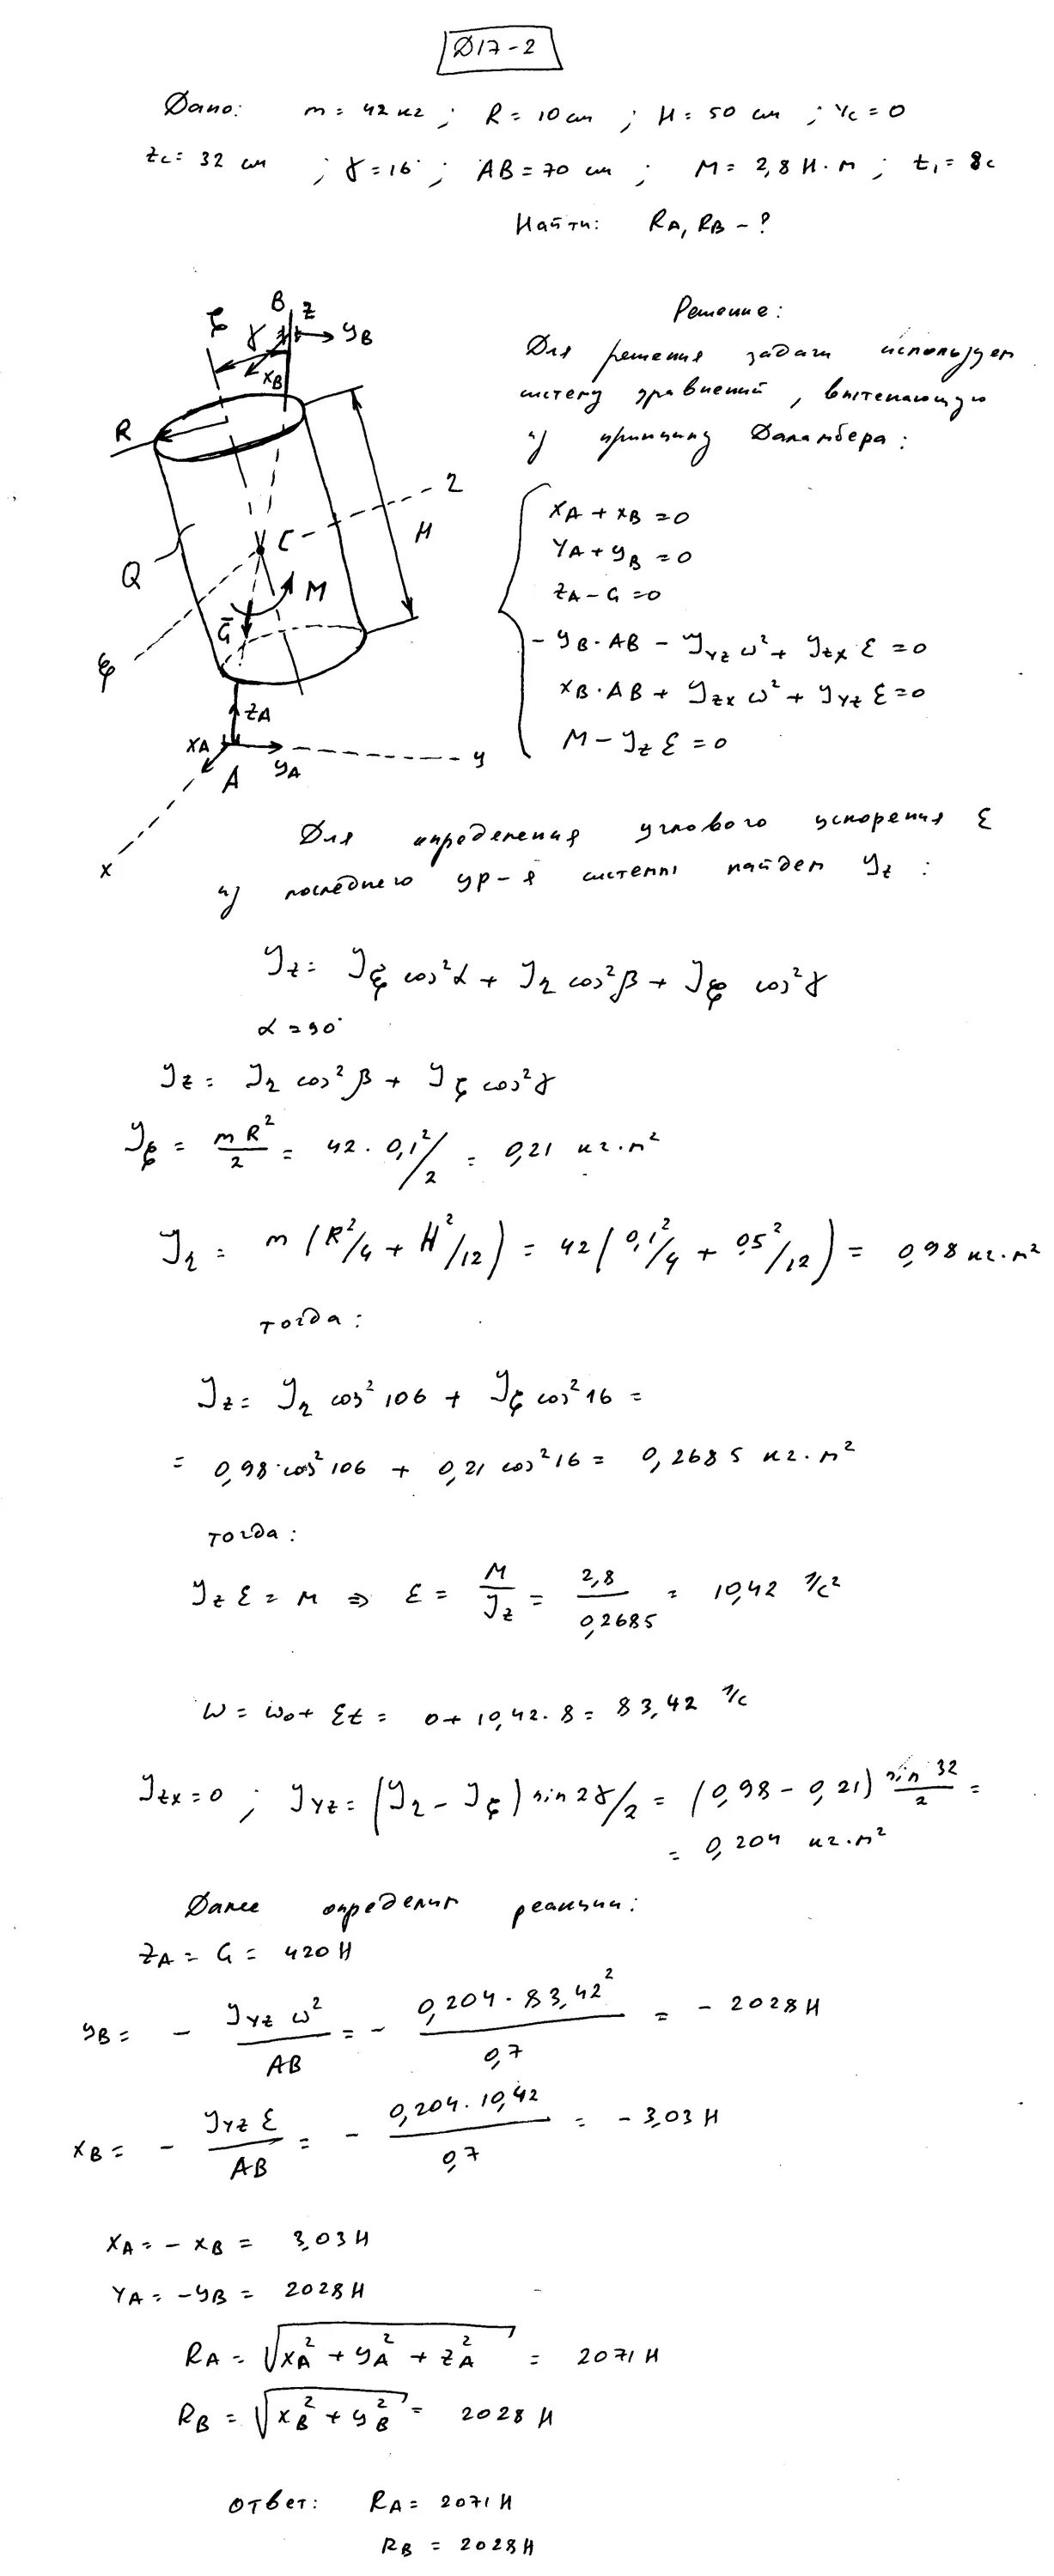 Д17-2
Дано: m = 42 кг ; R = 10 см ; H = 50 см ; Yc = 0
zc = 32 см ; γ = 16° ; AB = 70 см ; M = 2,8 Н·м ; t₁ = 8с
Найти: RA, RB - ?
Решение:
Для решения задачи используем
систему уравнений, вытекающую
из принципу Даламбера:
ζ γ B z yB
xB
R
Q
C
η
H
M
G̅
ξ
zA
xA
yA
y
A
x
xA + xB = 0
YA + yB = 0
zA - G = 0
- yB · AB - Jyz ω² + Jzx ε = 0
xB · AB + Jzx ω² + Jyz ε = 0
M - Jz ε = 0
Для определения углового ускорения ε
из последнего ур-я системы найдем Jz :
Jz = Jξ cos²α + Jη cos²β + Jζ cos²γ
α = 90°
Jz = Jη cos²β + Jζ cos²γ
Jζ = mR²/2 = 42 · 0,1²/2 = 0,21 кг·м²
Jη = m (R²/4 + H²/12) = 42 (0,1²/4 + 0,5²/12) = 0,98 кг·м²
тогда:
Jz = Jη cos²106 + Jζ cos²16 =
= 0,98·cos²106 + 0,21 cos²16 = 0,2685 кг·м²
тогда:
Jz ε = M ⇒ ε = M/Jz = 2,8/0,2685 = 10,42 1/с²
ω = ω₀ + εt = 0 + 10,42 · 8 = 83,42 1/с
Jzx = 0 ; Jyz = (Jη - Jζ) sin 2γ/2 = (0,98 - 0,21) sin 32/2 =
= 0,204 кг·м²
Далее определим реакции:
zA = G = 420 Н
yB = - Jyz ω²/AB = - 0,204 · 83,42²/0,7 = - 2028 Н
xB = - Jyz ε/AB = - 0,204 · 10,42/0,7 = - 3,03 Н
xA = - xB = 3,03 Н
YA = - yB = 2028 Н
RA = √(xA² + yA² + zA²) = 2071 Н
RB = √(xB² + yB²) = 2028 Н
Ответ: RA = 2071 Н
RB = 2028 Н